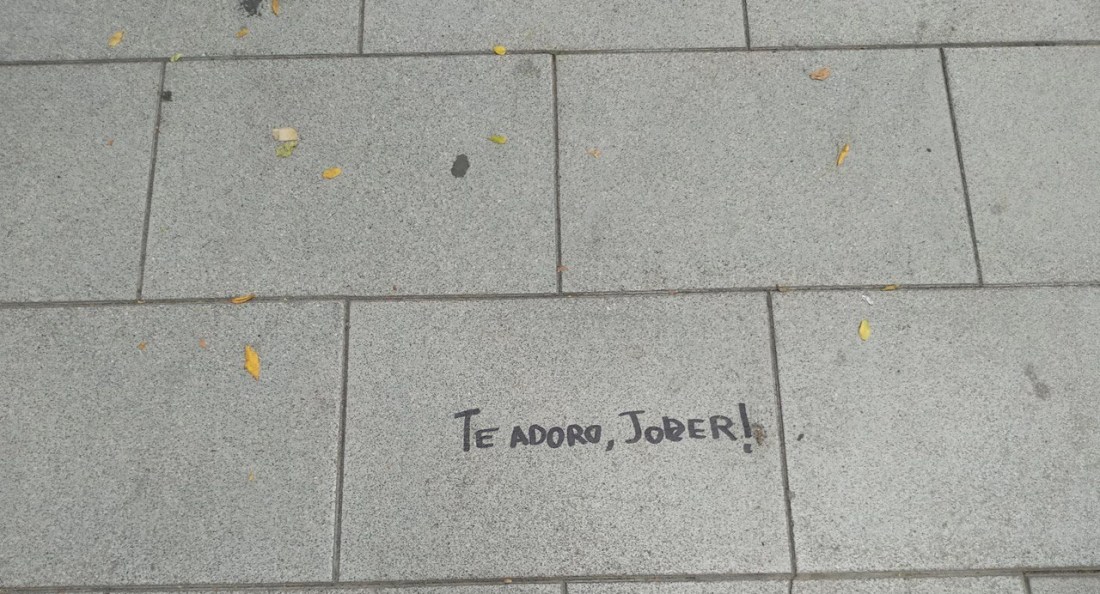 TE ADORO, JOBER!